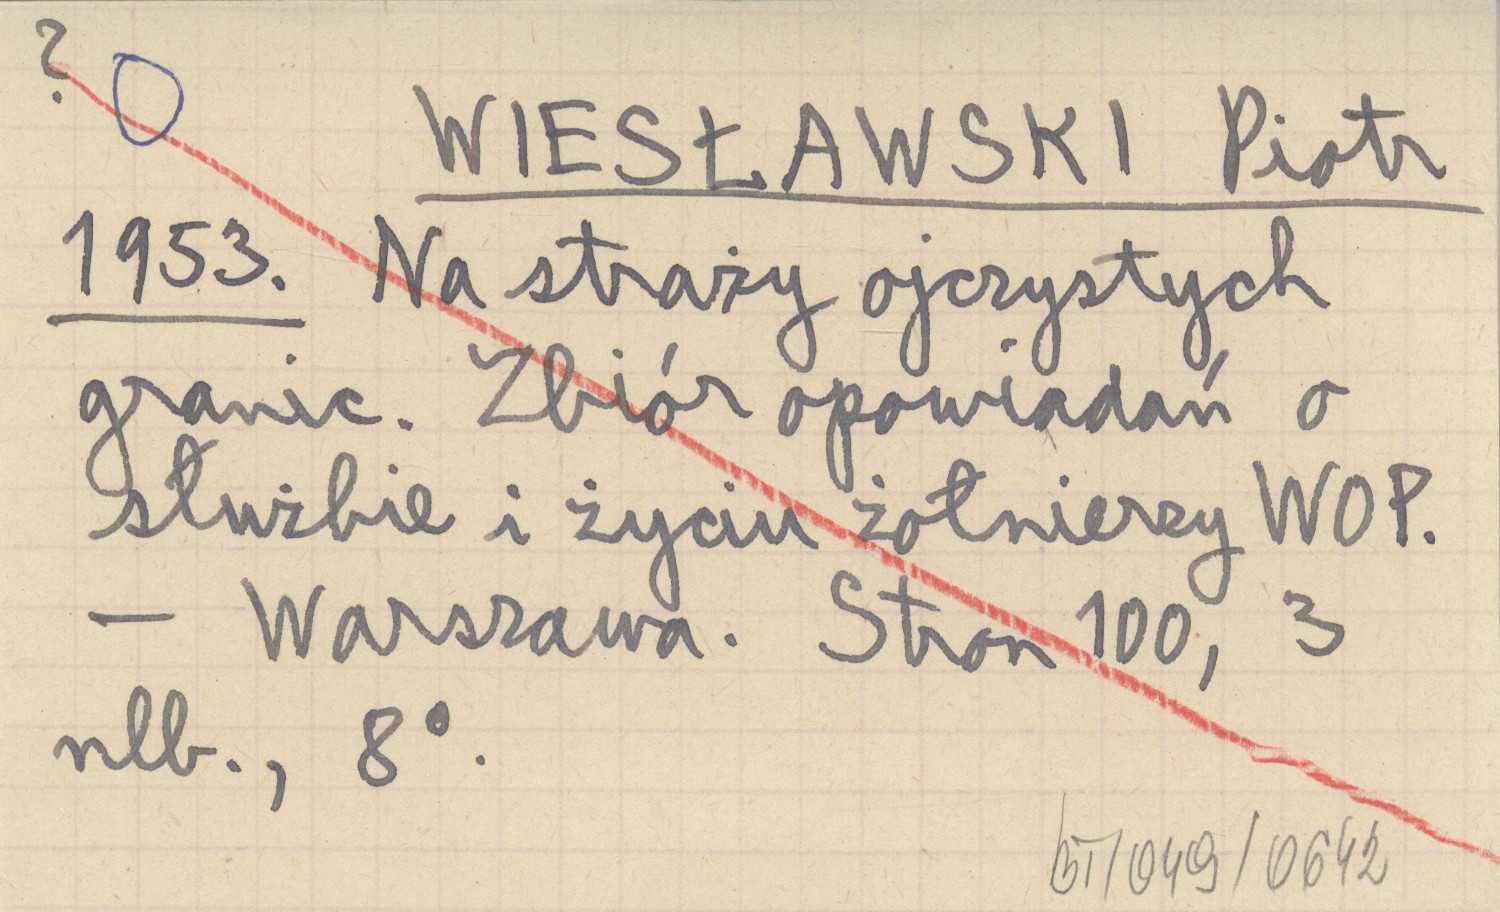 ?
WIESŁAWSKI Piotr
1953. Na straży ojczystych
granic. Zbiór opowiadań o
służbie i życiu żołnierzy WOP.
— Warszawa. Stron 100, 3
nlb., 8°.
BT/049/0642